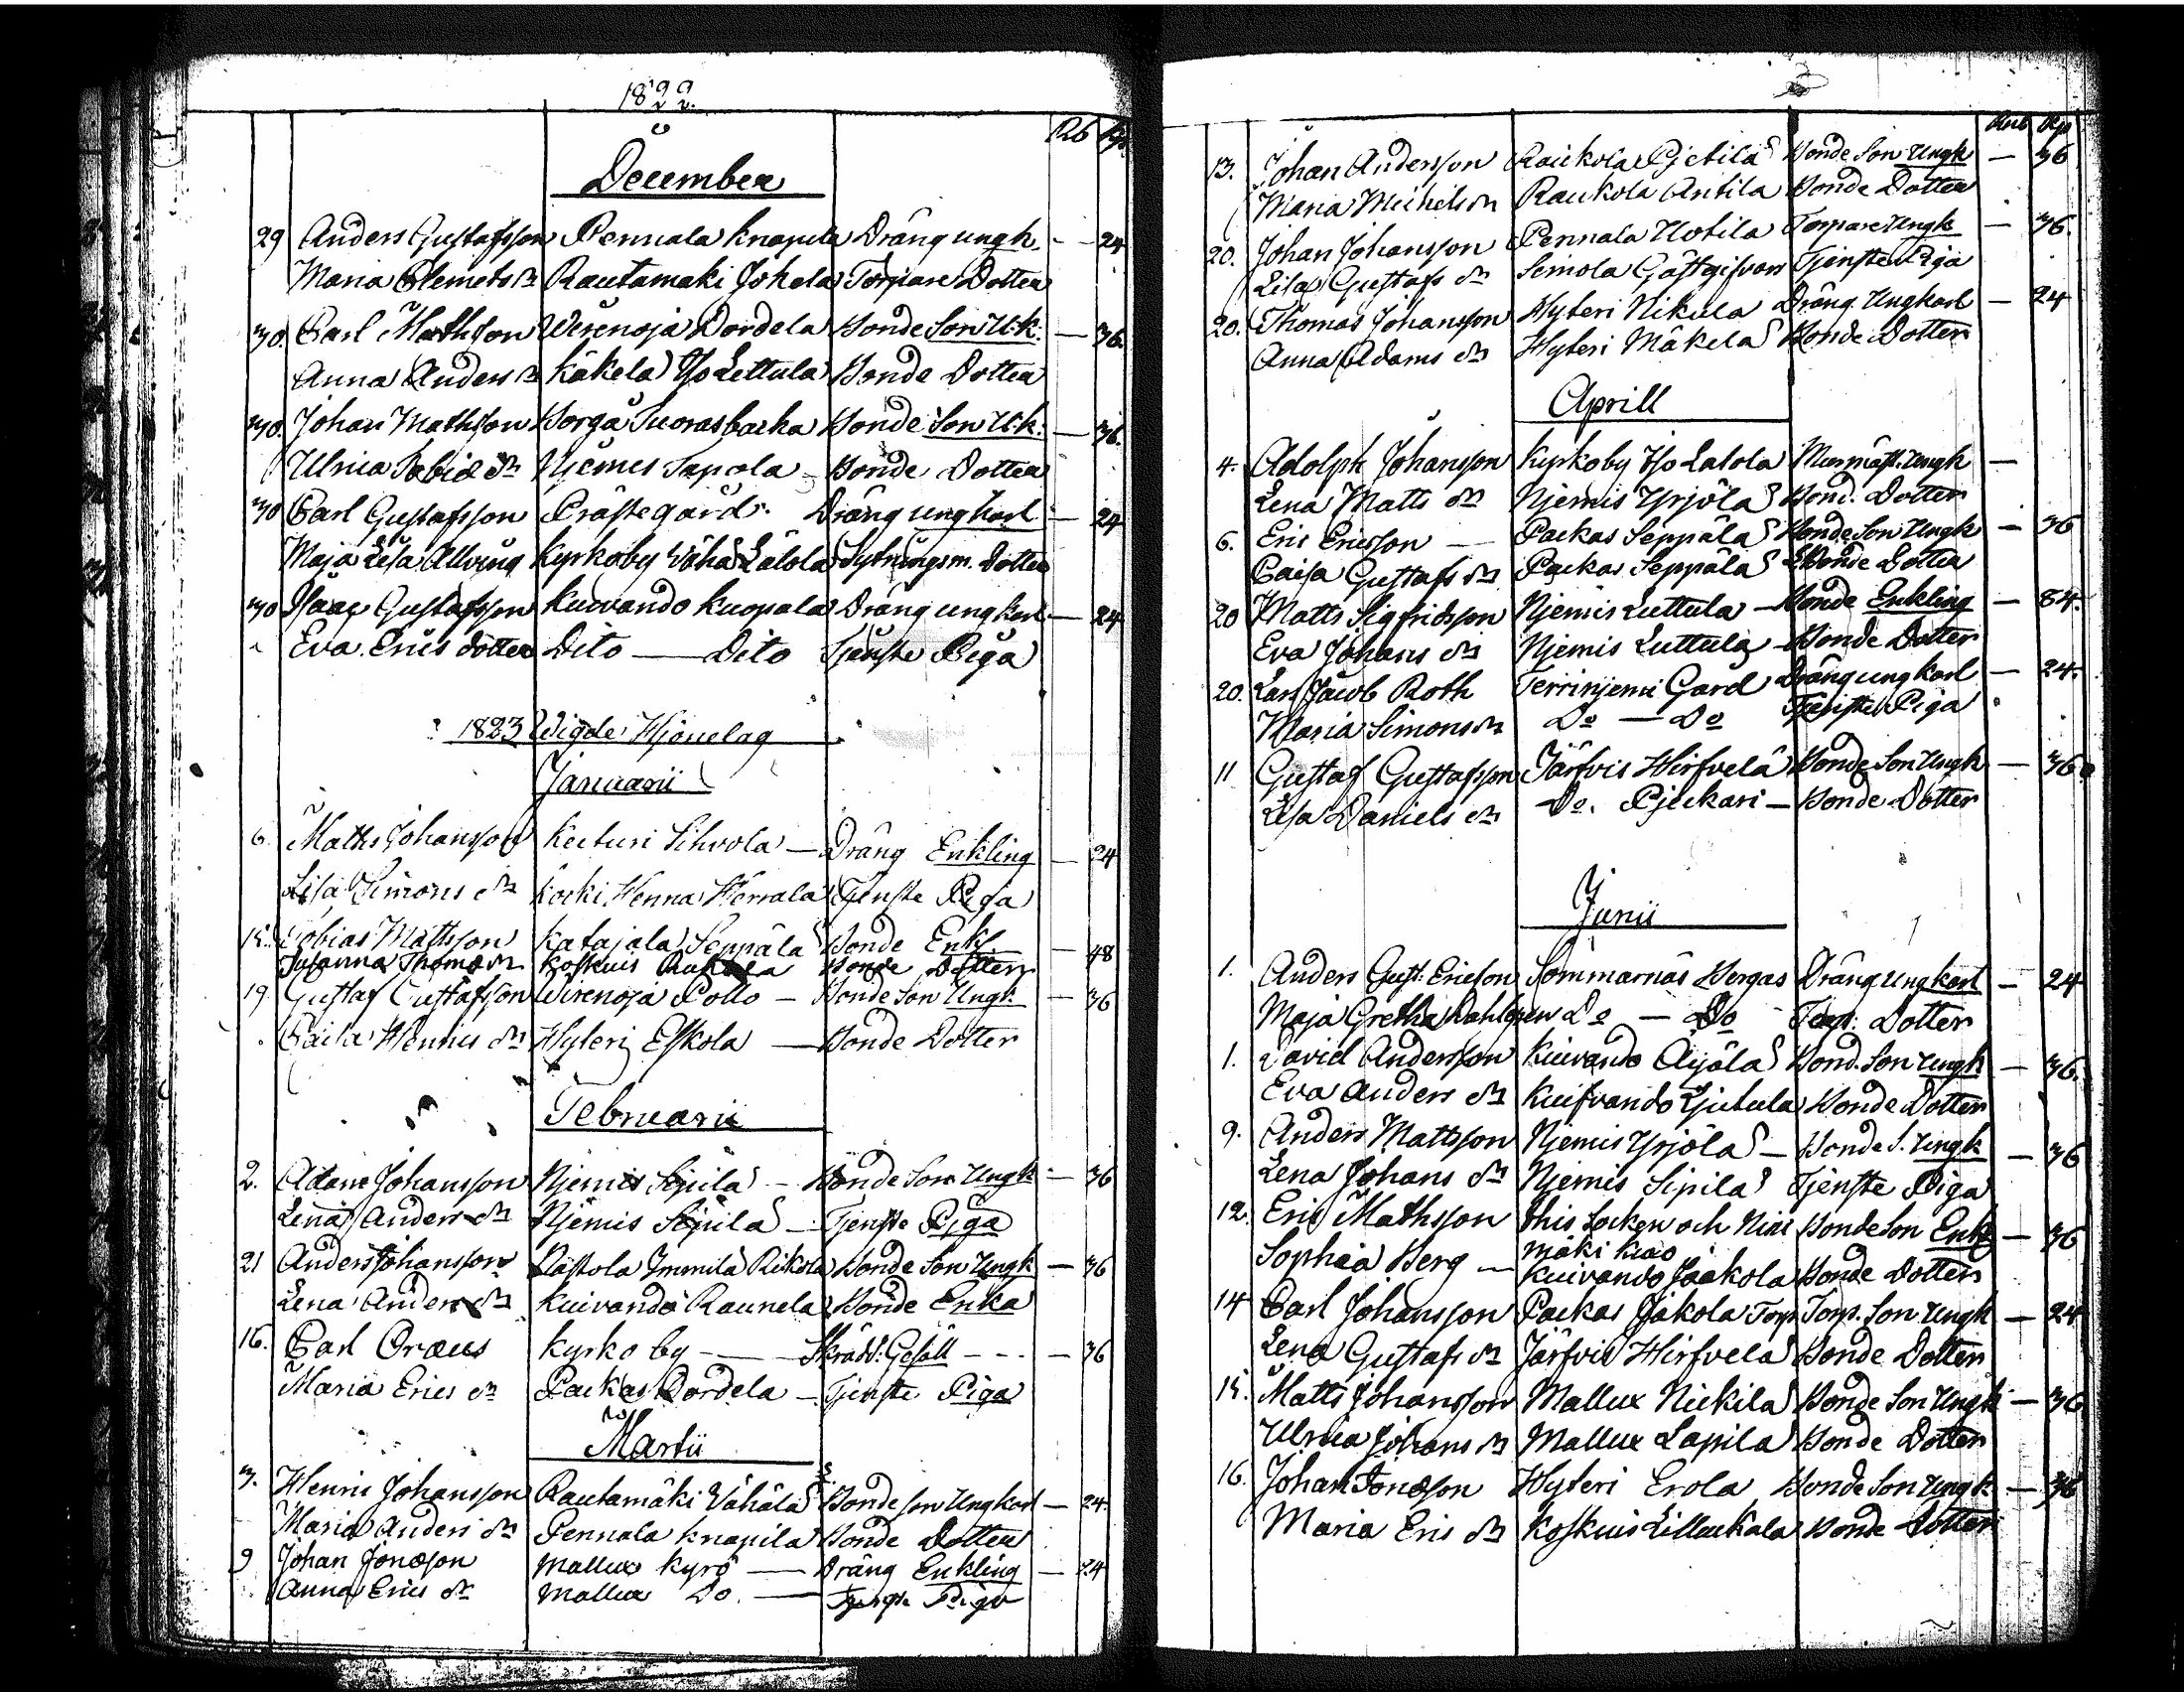 1822.
Rb Kp.
December
29 Anders Gustafsson Pennala Knapila Dräng ungk. — 24
Maria Clemets dr Rautamaki Johela Torpare Dotter
30. Carl Mathson Wirenoja Dordela Bonde Son U.k. — 36.
Anna Anders dr Käkelä Yso Lettula Bonde Dotter
30. Johan Mathsson Borgå Suorasbacka Bonde Son U.k. — 36.
Ulrica Tobiæ dr Njemis Sapola — Bonde Dotter
30 Carl Gustafsson Prästegård. Dräng ungkarl — 24
Maja Lisa Allving Kyrkoby Wähä Lalola Sytningsm. Dotter
30 Isaac Gustafsson Kuivando Kuopala Dräng ungkarl — 24
Eva Erics dotter Dito — Dito Tjenste Piga
1823 Wigde Hjonelag
Januarii
6. Maths Johansson Keituri Sihvola — Dräng Enkling — 24
Lisa Simons dr Koski Henna Herrala Tjenste Piga
15. Tobias Mattsson Katajala Seppälä Bonde Enkl. — 48
Susanna Thomæ dr Koskuis Bonde Dotter
19 Gustaf Gustafsson Wirenoja Pollo — Bonde Son Ungk. — 36
Caisa Henrics dr Hyteri Eskola — Bonde Dotter
Februarii
2. Adam Johansson Njemis Sipilä — Bonde Son Ungk — 36
Lena Anders dr Njemis Sipilä — Tjenste Piga
21 Anders Johansson Rästola Immilä Rikola Bonde Son Ungk — 36
Lena Anders dr Kuivando Raunela Bonde Enka
16. Carl Oræus Kyrkoby — Skrädd: Gesäll — 36
Maria Erics dr Packas Dordela — Tjenste Piga
Martii
3. Henric Johansson Rautamäki Wähälä Bonde son Ungkarl — 24
Maria Anders dr Pennala Knapila Bonde Dotter
9 Johan Jonæson Mallux Kyrö — Dräng Enkling — 24
Anna Erics dr Mallux Do. — Tjenste Piga
Rub Kp
13. Johan Andersson Raukola Pietilä Bonde Son Ungk — 36
Maria Michels dr Raukola Antila Bonde Dotter
20. Johan Johansson Pennala Uotila Torpare Ungk — 36.
Lisa Gustafs dr Seinola Gästgifvars Tjenste Piga
20. Thomas Johansson Hyteri Nikula Dräng Ungkarl — 24
Anna Adams dr Hyteri Mäkelä Bonde Dotter
Aprill
4. Adolph Johansson Kyrkoby Yso Lalola Murmäst. Ungk —
Lena Matts dr Njemis Yrjölä Bond. Dotter
6. Eric Ericsson — Packas Seppälä Bonde Son Ungk — 36
Caisa Gustafs dr Packas Seppälä Bonde Dotter
20 Matts Sigfridsson Njemis Luttula — Bonde Enkling — 84.
Eva Johans dr Njemis Luttula — Bonde Dotter
20. Carl Jacob Roth Terrinjemi Gard Dräng ungkarl — 24.
Maria Simons dr Do — Do Tjenste Piga
11 Gustaf Gustafsson Järfvis Hirfvelä Bonde Son Ungk — 36
Lisa Daniels dr Do. Pjickari — Bonde Dotter
Junii
1. Anders Gust. Ericson Sommarnäs Bergas Dräng Ungkarl — 24
Maja Gretha Dahlgren Do — Do Torp. Dotter
1. David Andersson Kuivando Äijälä Bond. Son Ungk — 36.
Eva Anders dr Kuifvando Bonde Dotter
9. Anders Mattsson Njemis Yrjölä — Bonde S. Ungk — 36
Lena Johans dr Njemis Sipilä Tjenste Piga
12. Eric Mathsson Ithis Socken och Nini Bonde Son Enkl — 36
mäki
Sophia Berg — Kuivando Jaakola Bonde Dotter
14 Carl Johansson Packas Jakola Torp Torp. Son Ungk — 24
Lena Gustafs dr Järfvis Hirfvelä Bonde Dotter
15. Matts Johansson Mallux Nickilä Bonde Son Ungk — 36
Ulrica Johans dr Mallux Lapila Bonde Dotter
16. Johan Jonæson Hyteri Erola Bonde Son Ungk — 36
Maria Erics dr Koskuis Lillukala Bonde Dotter